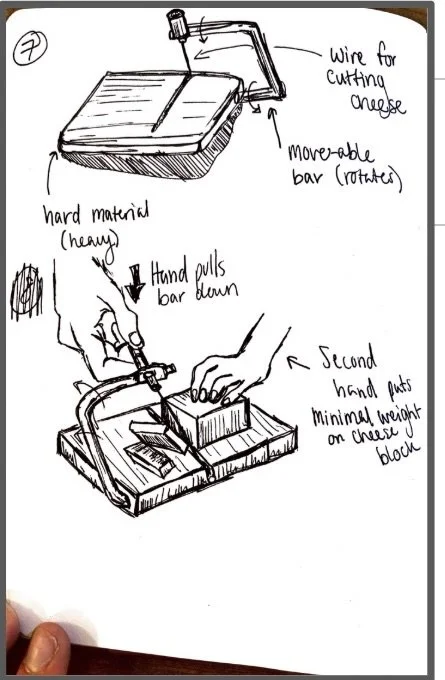 7
wire for
cutting
cheese
move-able
bar (rotates)
hard material
(heavy)
Hand pulls
bar down
Second
hand puts
minimal weight
on cheese
block